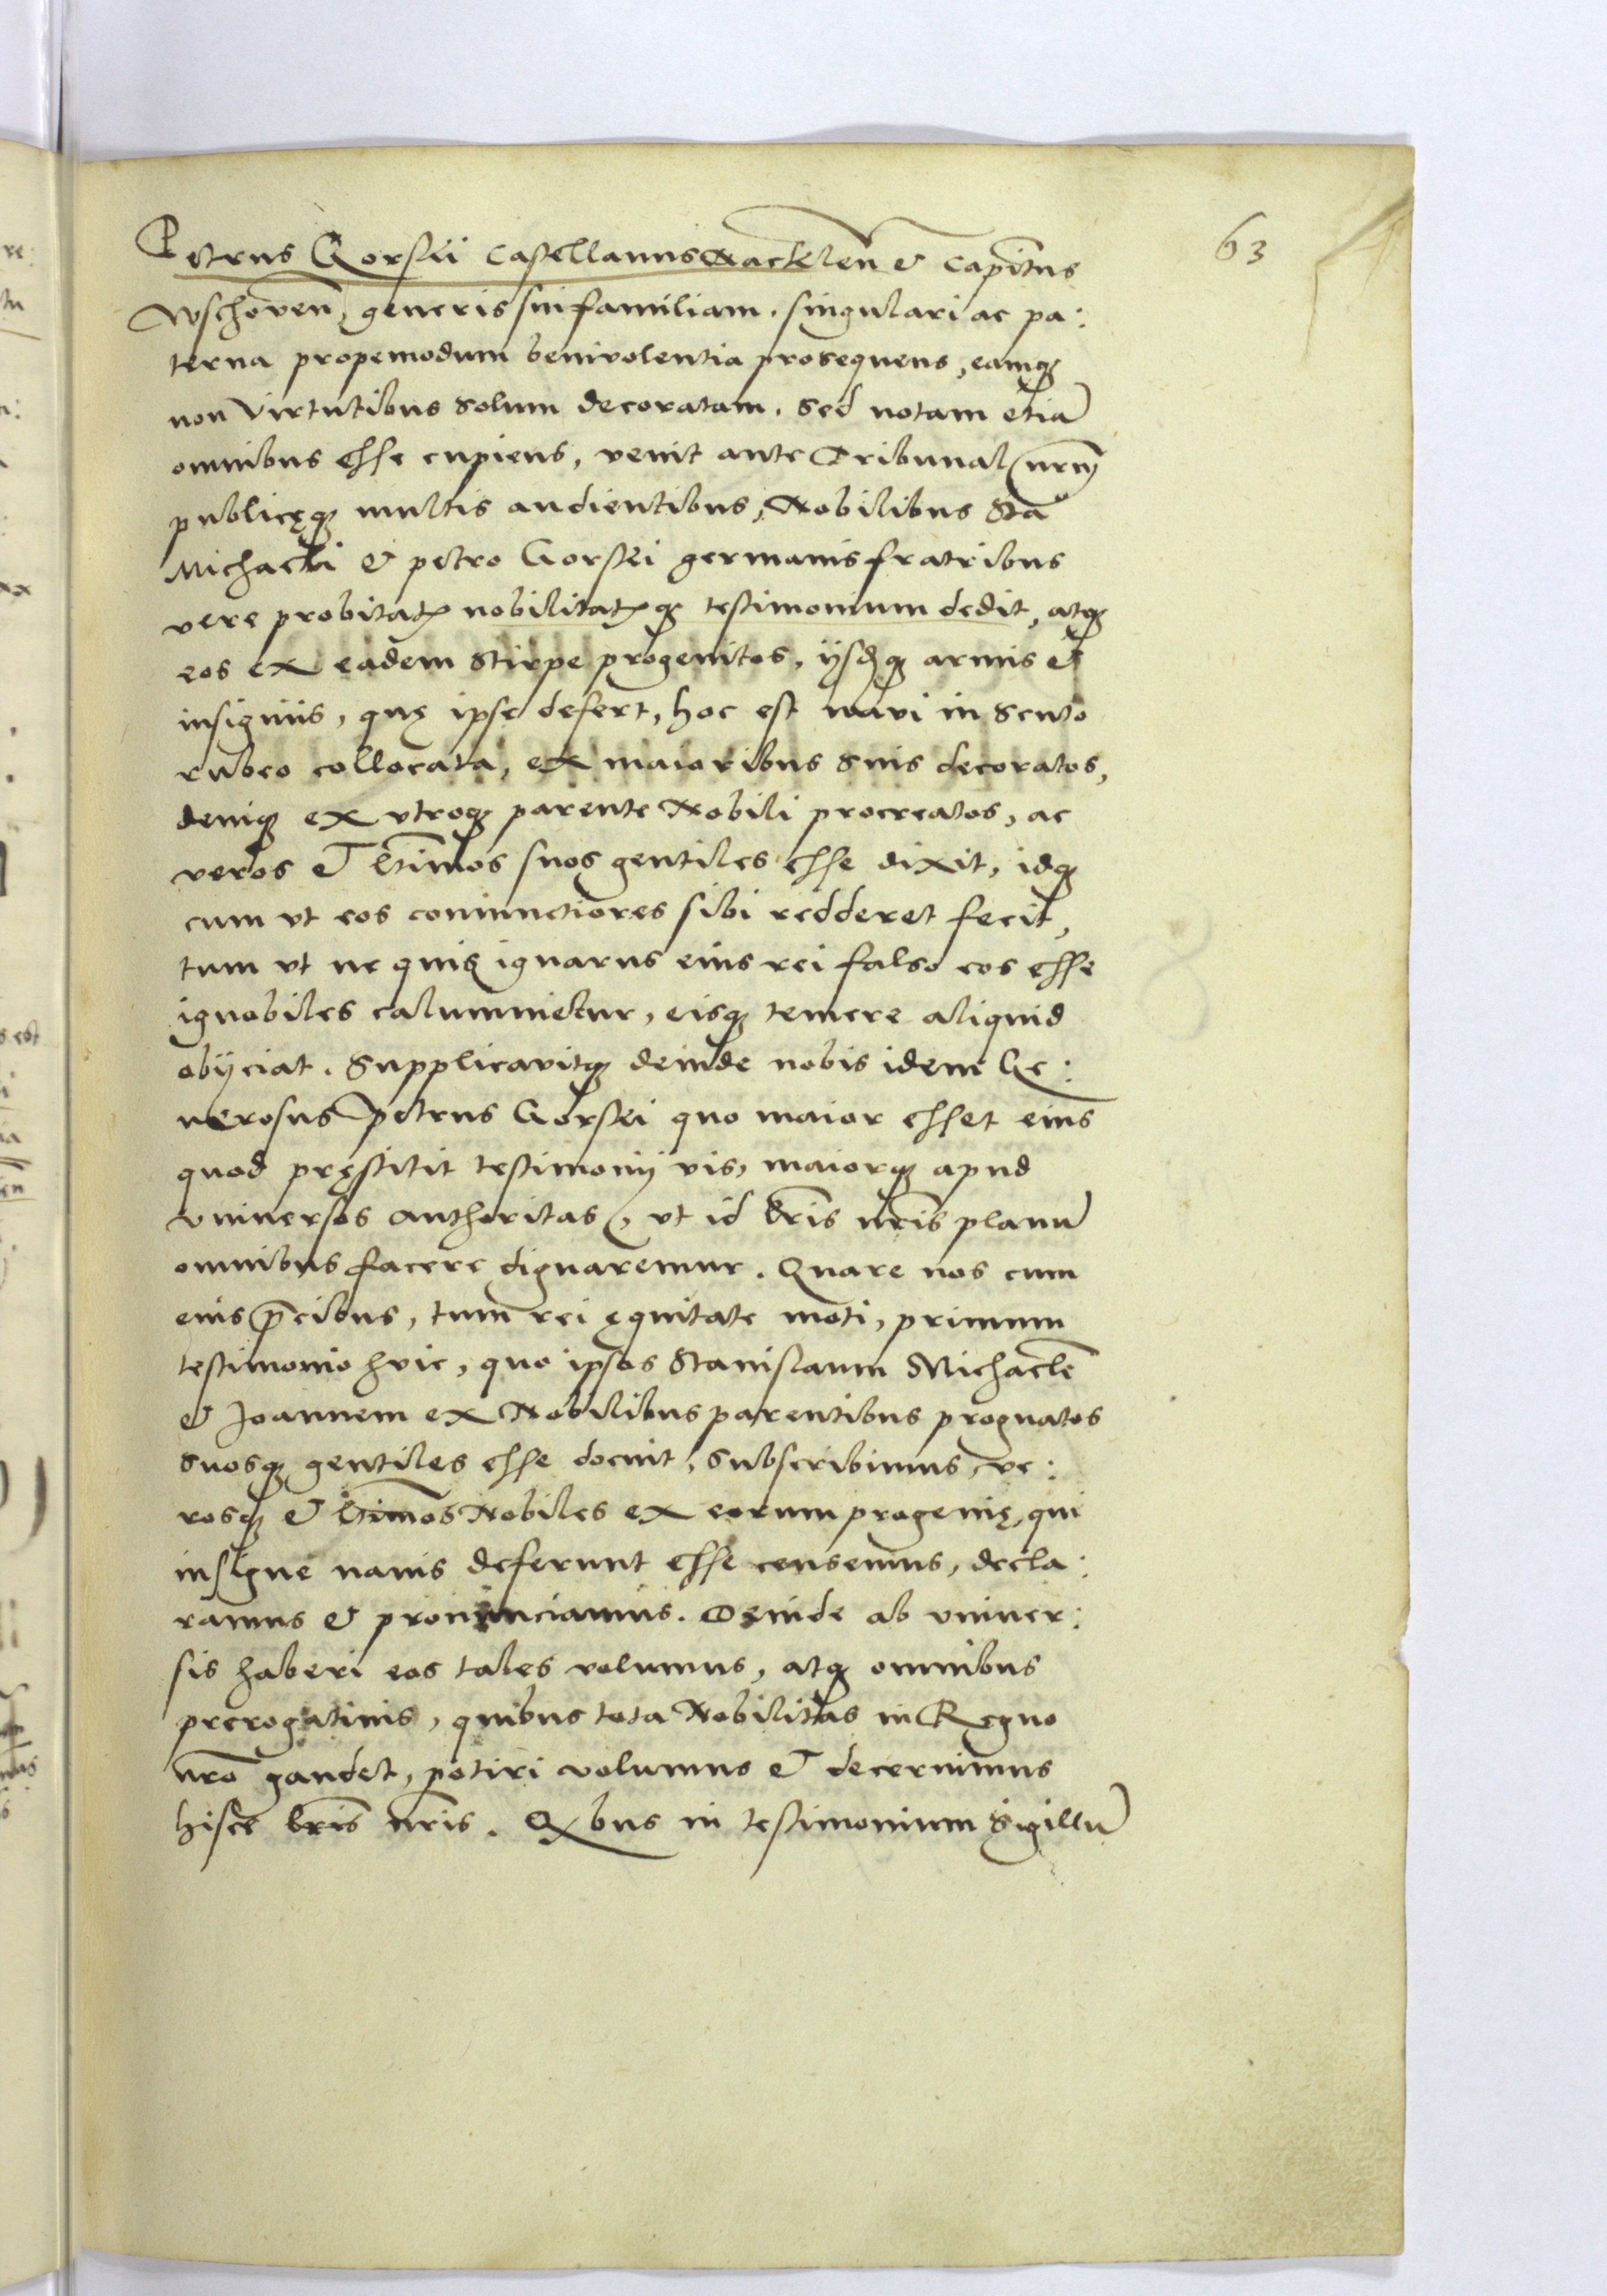 63
Petrus Gorski Castellanus Nacklen̄ & Capitn̄us
Wschoven̄, generis sui familiam, singulari ac pa:
terna propemodum benivolentia prosequens, eamq̢
non virtutibus solum decoratam, sed notam etiā
omnibus esse cupiens, venit ante Tribunal nr̄m
publicęq̢ multis audientibus, Nobilibus Sta
Michaeli & petro Gorski germanis fratribus
vere probitatꝭ nobilitatꝭq̢ testimonium dedit, atq̢
eos ex eadem stirpe progenitos, ijsdq̢ armis &
insigniis, quę ipse defert, hoc est navi in scuto
rubeo collocata, ex maioribus suis decoratos,
deniq̢ ex vtroq̢ parente Nobili procreatos, ac
veros & ltīmos suos gentiles esse dixit, idq̢
cum vt eos coniunctiores sibi redderet fecit,
tum vt ne quis ignarus eius rei falso eos esse
ignobiles calumnietur, eisq̢ temere aliquid
obijciat. Supplicavitq̢ deinde nobis idem Ge:
nerosus petrus Gorski quo maior esset eius
quod pręstitit testimonij vis, maiorq̢ apud
vniversos authoritas, vt id lr̄is nr̄is planū
omnibus facere dignaremur. Quare nos cum
eius p̄cibus, tum rei ęquitate moti, primum
testimonio huic, quo ipsos Stanislaum Michaelē
& Joannem ex Nobilibus parentibus prognatos
suosq̢ gentiles esse docuit, subscribimus, ve:
rosq̢ & ltīmos Nobiles ex eorum progenię, qui
insigne navis deferunt esse censemus, decla:
ramus & pronunciamus. Deinde ab vniver:
sis haberi eos tales volumus, atq̢ omnibus
prerogativis, quibus tota Nobilitas in Regno
nr̄o gaudet, potiri volumus & decernimus
hisce lr̄is nr̄is. Qbus in testimonium Sigillū